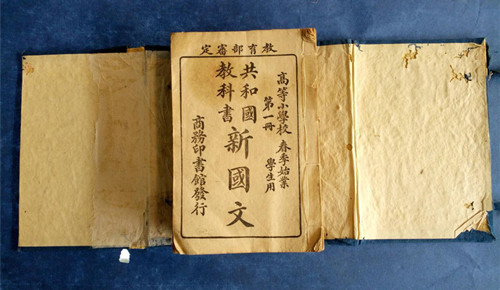 教育部審定
高等小學校 春季始業
第一冊 學生用
共和國
教科書
新國文
商務印書館發行